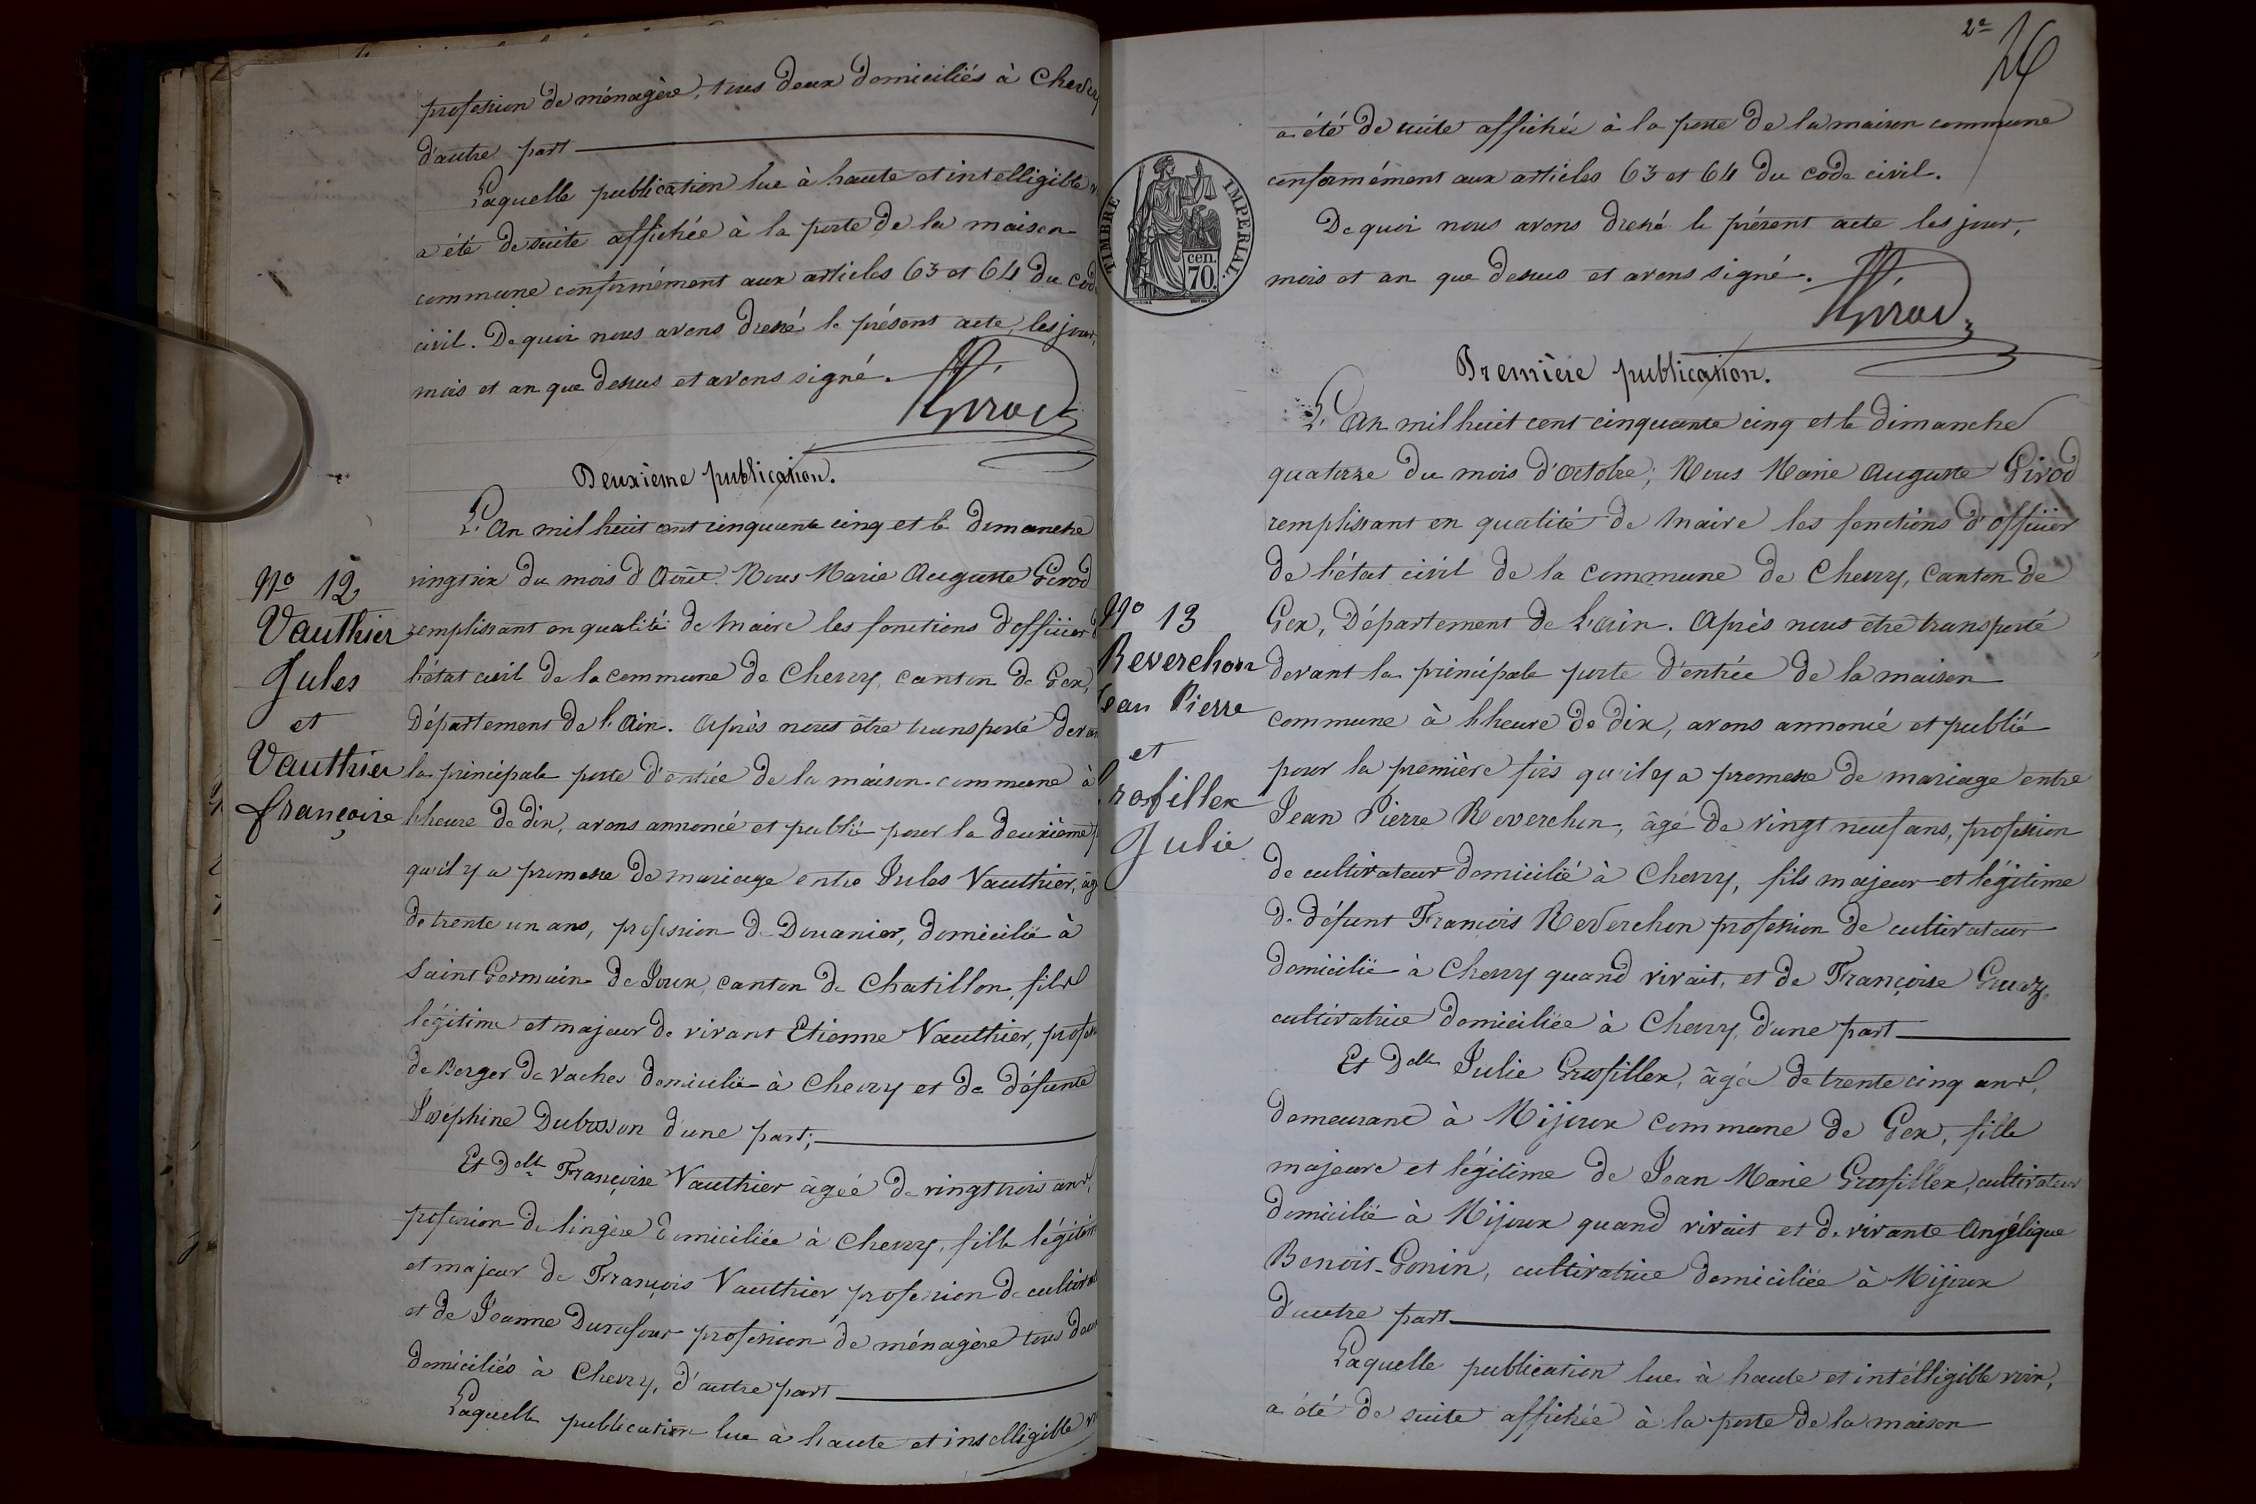 profession de ménagère, tous deux domiciliés à Chevry
d'autre part
Laquelle publication lue à haute et intelligible
a été de suite affichée à la porte de la maison
commune conformément aux articles 63 et 64 du cod
civil. De quoi nous avons dressé le présent acte, les jour,
mois et an que dessus et avons signé.
Girod
Deuxième publication.
L'An mil huit cent cinquante cinq et le dimanche
vingt six du mois d'Août. Nous Marie Auguste Girod
remplissant en qualité de Maire les fonctions d'officier d
l'état civil de la commune de Chevry, canton de Gex,
Département de l'Ain. Après nous être transporté devan
la principale porte d'entrée de la maison commune à
l'heure de dix, avons annoncé et publié pour la deuxième f
qu'il y a promesse de mariage entre Jules Vauthier, âg
de trente un ans, profession de Douanier, domicilié à
Saint Germain de Joux, canton de Chatillon, fils
légitime et majeur de vivant Etienne Vauthier, profess
de Berger de Vaches domicilié à Chevry et de défunte
Joséphine Dubosson d'une part;
Et Delle Françoise Vauthier âgée de vingt trois ans,
profession de lingère domiciliée à Chevry, fille légitim
et majeur de François Vauthier profession de cultivat
et de Jeanne Durafour profession de ménagère tous deux
domiciliés à Chevry, d'autre part
Laquelle publication lue à haute et intelligible vo
No 12
Vauthier
Jules
et
Vauthier
françoise
2e
26
a été de suite affichée à la porte de la maison commune
conformément aux articles 63 et 64 du code civil.
De quoi nous avons dressé le présent acte les jour,
mois et an que dessus et avons signé.
Girod
TIMBRE IMPERIAL.
cen.
70.
Première publication.
L'An mil huit cent cinquante cinq et le dimanche
quatorze du mois d'Octobre; Nous Marie Auguste Girod
remplissant en qualité de Maire les fonctions d'officier
de l'état civil de la commune de Chevry, Canton de
Gex, Département de l'Ain. Après nous être transporté
devant la principale porte d'entrée de la maison
commune à l'heure de dix, avons annoncé et publié
pour la première fois qu'il y a promesse de mariage entre
Jean Pierre Reverchon, âgé de vingt neuf ans, profession
de cultivateur domicilié à Chevry, fils majeur et légitime
de défunt François Reverchon profession de cultivateur
domicilié à Chevry quand vivait, et de Françoise Gruaz,
cultivatrice domiciliée à Chevry, d'une part
Et Delle Julie Grosfillex, âgée de trente cinq ans,
demeurant à Mijoux commune de Gex, fille
majeure et légitime de Jean Marie Grosfillex, cultivateur
domicilié à Mijoux quand vivait et de vivante Angélique
Benoit-Gonin, cultivatrice domiciliée à Mijoux
d'autre part
Laquelle publication lue à haute et intélligible voix,
a été de suite affichée à la porte de la maison
No 13
Reverchon
Jean Pierre
et
Grosfillex
Julie